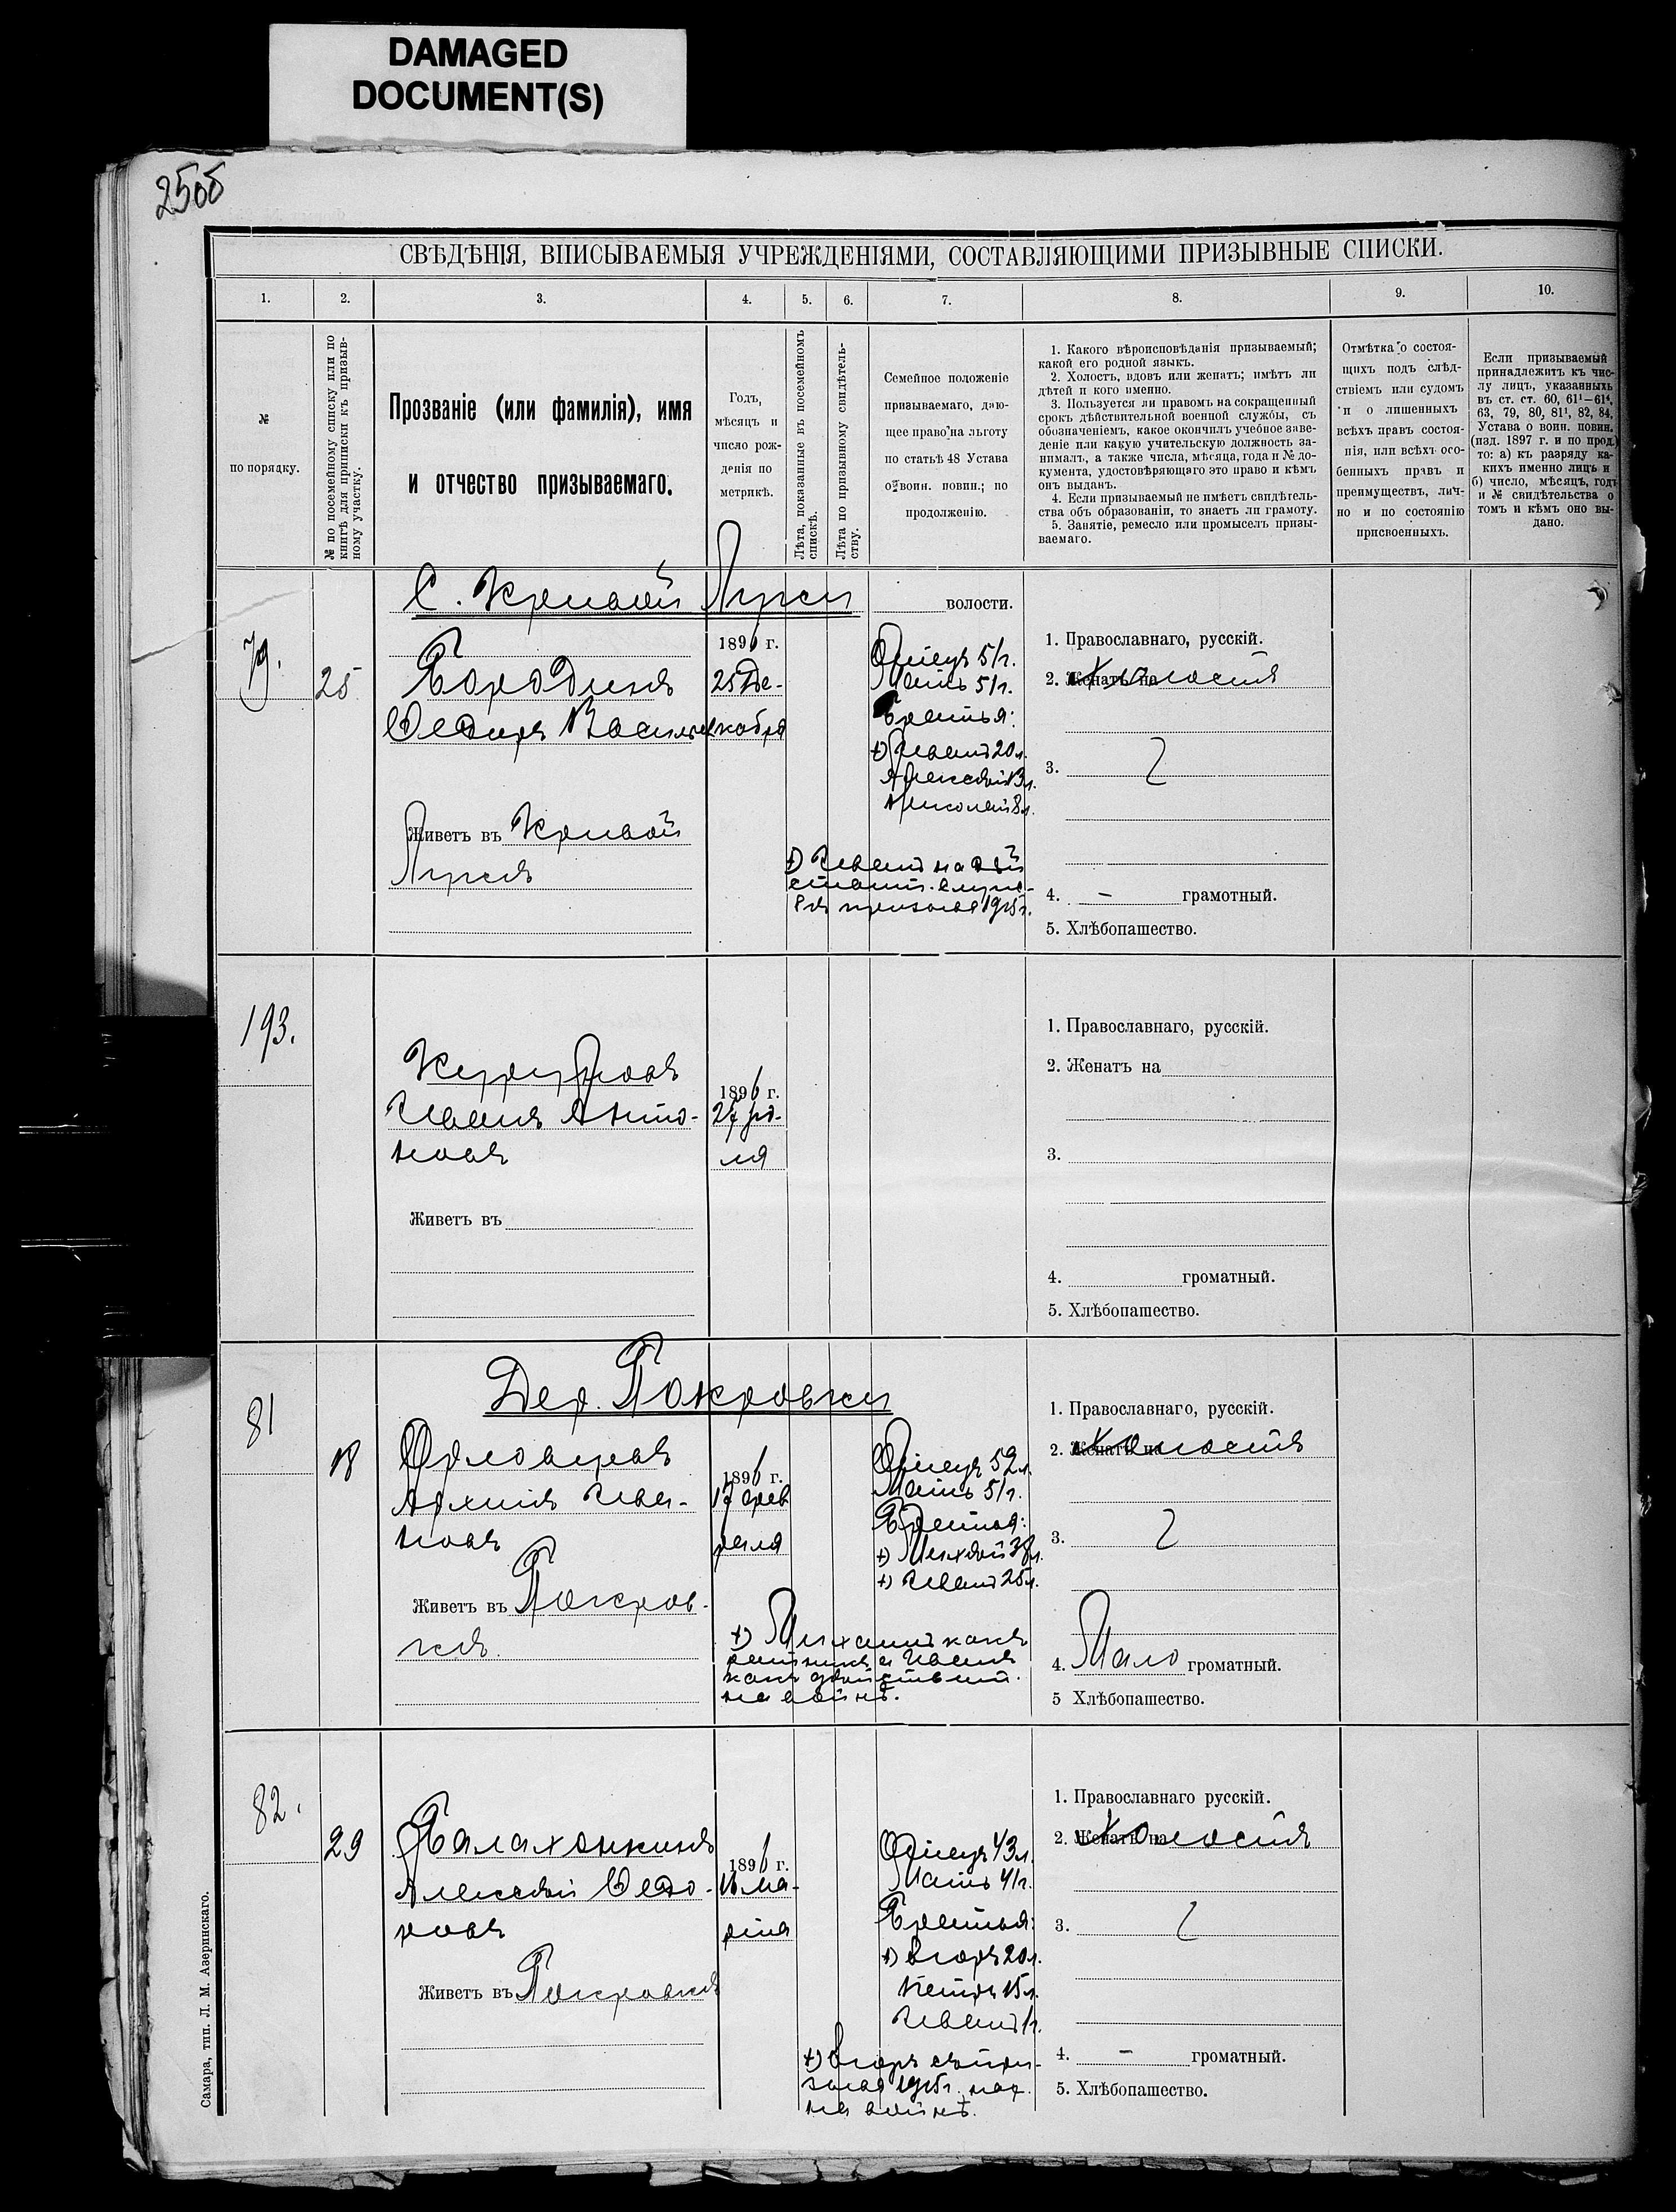 DAMAGED
DOCUMENT(S)
2505
СВѢДѢНІЯ, ВПИСЫВАЕМЫЯ УЧРЕЖДЕНІЯМИ, СОСТАВЛЯЮЩИМИ ПРИЗЫВНЫЕ СПИСКИ.
1. 2. 3. 4. 5. 6. 7. 8. 9. 10.
№
по порядку.
№ по посемейному списку или по
книгѣ для приписки къ призыв-
ному участку.
Прозваніе (или фамилія), имя
и отчество призываемаго.
Годъ,
мѣсяцъ и
число рож-
денія по
метрикѣ.
Лѣта, показанные въ посемейномъ
спискѣ.
Лѣта по призывному свидѣтель-
ству.
Семейное положеніе
призываемаго, даю-
щее право на льготу
по статьѣ 48 Устава
о воин. повин.; по
продолженію.
1. Какого вѣроисповѣданія призываемый;
какой его родной языкъ.
2. Холостъ, вдовъ или женатъ; имѣтъ ли
дѣтей и кого именно.
3. Пользуется ли правомъ на сокращенный
срокъ дѣйствительной военной службы, съ
обозначеніемъ, какое окончилъ учебное заве-
деніе или какую учительскую должность за-
нималъ, а также числа, мѣсяца, года и № до-
кумента, удостовѣряющаго это право и кѣмъ
онъ выданъ.
4. Если призываемый не имѣетъ свидѣтель-
ства объ образованіи, то знаетъ ли грамоту.
5. Занятіе, ремесло или промыселъ призы-
ваемаго.
Отмѣтка о состоя-
щихъ подъ слѣд-
ствіемъ или судомъ
и о лишенныхъ
всѣхъ правъ состоя-
нія, или всѣхъ осо-
бенныхъ правъ и
преимуществъ, лич-
но и по состоянію
присвоенныхъ.
Если призываемый
принадлежитъ къ чис-
лу лицъ, указанныхъ
въ ст. ст. 60, 61¹—61⁴,
63, 79, 80, 81¹, 82, 84,
Устава о воин. повин.
(изд. 1897 г. и по прод.)
то: а) къ разряду ка-
кихъ именно лицъ и
б) число, мѣсяцъ, годъ
и № свидѣтельства о
томъ и кѣмъ оно вы-
дано.
С. Кривой Луки волости.
79.
25
Бородинъ
Ѳедоръ Васильев
Живетъ въ Кривой
Лукѣ
1896 г.
25 Де-
кабря
Отецъ 51 г.
Мать 51 г.
Братья:
+) Иванъ 20 л.
Алексѣй 13 л.
Николай 8 л.
+) Иванъ на дѣй
ствит. служ-
бѣ призыва 1915 г.
1. Православнаго, русскій.
2. Женатъ на Холостъ
3.
4. – грамотный.
5. Хлѣбопашество.
193.
Иванъ Анто-
новъ
Живетъ въ
1896 г.
27 Ію-
ля
1. Православнаго, русскій.
2. Женатъ на
3.
4. громатный.
5. Хлѣбопашество.
Дер. Покровки
81
18
Орловцевъ
Архипъ Ива-
новъ
Живетъ въ Покров-
кѣ.
1896 г.
17 Фев
раля
Отецъ 52 л.
Мать 51 г.
Братья:
+) Михаил 38 л.
+) Иванъ 25 л.
+) Михаилъ какъ
ратникъ а Иванъ
какъ дѣйствит.
на войнѣ.
1. Православнаго, русскій.
2. Женатъ на Холостъ
3.
4. Мало громатный.
5 Хлѣбопашество.
82.
29
Балахонкинъ
Алексѣй Ѳедо-
ровъ
Живетъ въ Покровкѣ
1896 г.
16 Ма-
рта
Отецъ 43 л.
Мать 41 г.
Братья:
+) Егоръ 20 л.
Петръ 15 л.
Иванъ 1 г.
+) Егоръ съ при-
зыва 1915 г. нах.
на войнѣ.
1. Православнаго русскій.
2. Женатъ на Холостъ
3.
4. – громатный.
5. Хлѣбопашество.
Самара, тип. Л. М. Азеринскаго.